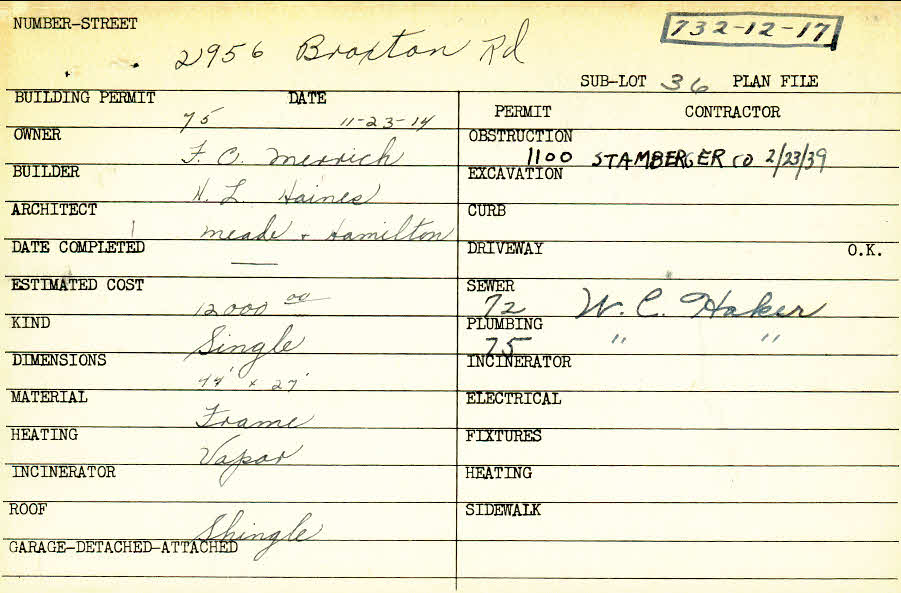 NUMBER-STREET
2956 Braxton Rd
732-12-17
SUB-LOT 36 PLAN FILE
BUILDING PERMIT DATE
75 11-23-14
OWNER
F. O. Merrich
BUILDER
H. L. Haines
ARCHITECT
Meade + Hamilton
DATE COMPLETED
—
ESTIMATED COST
12000 00
KIND
Single
DIMENSIONS
44' x 27'
MATERIAL
Frame
HEATING
Vapor
INCINERATOR
ROOF
Shingle
GARAGE-DETACHED-ATTACHED
PERMIT CONTRACTOR
OBSTRUCTION
1100 STAMBERGER CO 2/23/39
EXCAVATION
CURB
DRIVEWAY O.K.
SEWER
72 W. C. Haker
PLUMBING
75 " "
INCINERATOR
ELECTRICAL
FIXTURES
HEATING
SIDEWALK